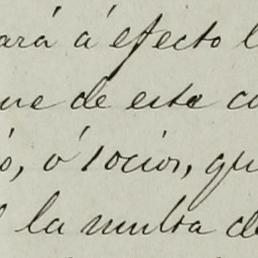 ará á efecto l
ue de este co
ó, ó socios, qu
l la multa de